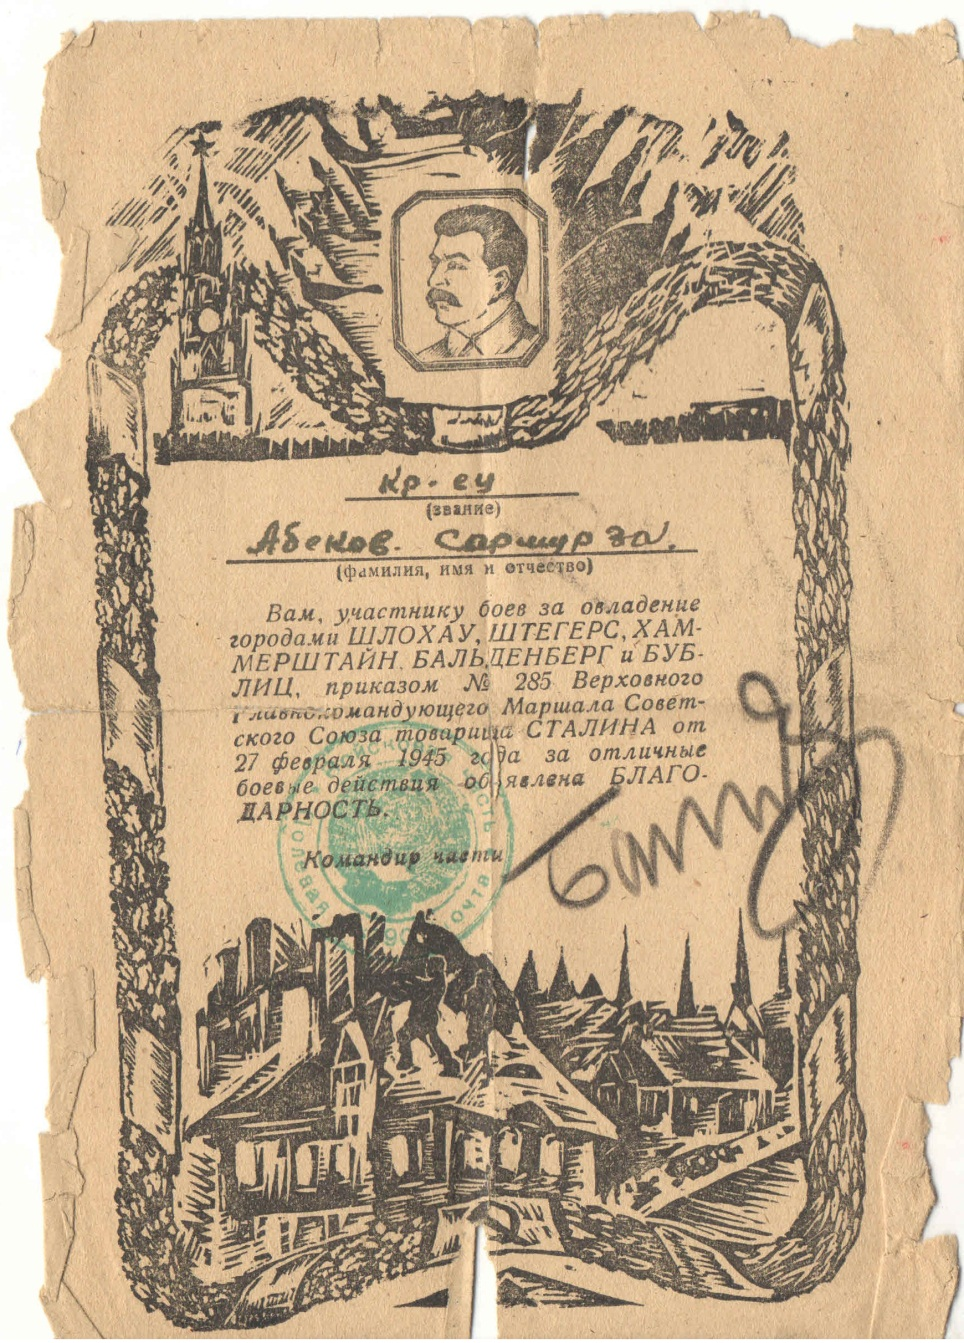 кр-еу
(звание)
Абеков. Сармурза.
(фамилия, имя и отчество)
Вам, участнику боев за овладение
городами ШЛОХАУ, ШТЕГЕРС, ХАМ-
МЕРШТАЙН, БАЛЬДЕНБЕРГ и БУБ-
ЛИЦ, приказом № 285 Верховного
Главнокомандующего Маршала Совет-
ского Союза товарища СТАЛИНА от
27 февраля 1945 года за отличные
боевые действия объявлена БЛАГО-
ДАРНОСТЬ.
Командир части
полевая почта